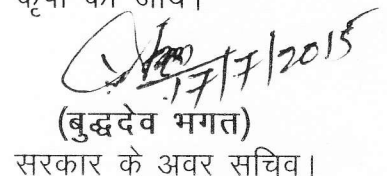 कृपा की जाय।
17/7/2015
(बुद्धदेव भगत)
सरकार के अवर सचिव।